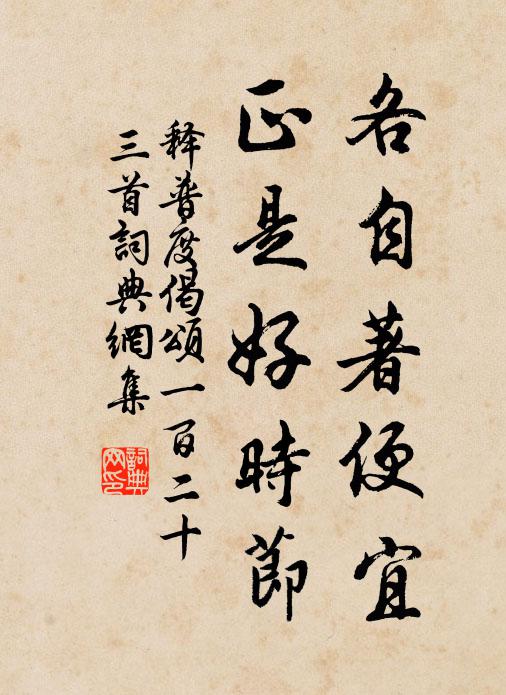 各自著便宜
正是好時節
釋普度偈頌一百二十
三首詞典網集
詞典網印